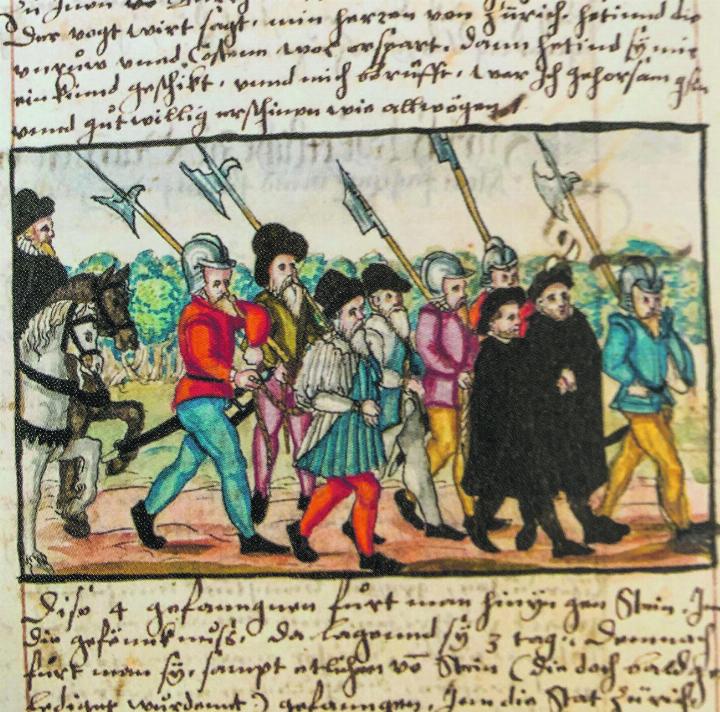 Der vogt wirt sagt, min herren von Zürich, hetind die
vnruw vnnd Costenn wol erspart, dann hetind sÿ mir
ein künd geschikt, vnnd mich berüfft, wer ich gehorsam gsin
vnnd gůt willig erschinen wie allwögen
Dise 4 gefanngnen fürt man hinÿn gen Stein, In
die gefënnknuss, da lagennd sÿ 3 tag, Demnach
fürt man sÿ, sampt etlichen vō Stein (die doch bald
lediget wurdennt) gefanngen, Inn die Stat Zürich